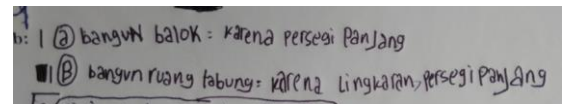 b: 1 (a) bangun balok : karena Persegi Panjang
1 (B) bangun ruang tabung : karena Lingkaran, persegi panjang